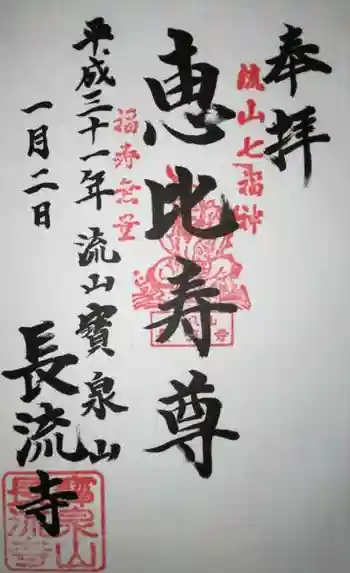 奉拝
流山七福神
恵比寿尊
福寿無量
平成三十一年
一月二日
流山寳泉山
長流寺
寳泉山
長流寺